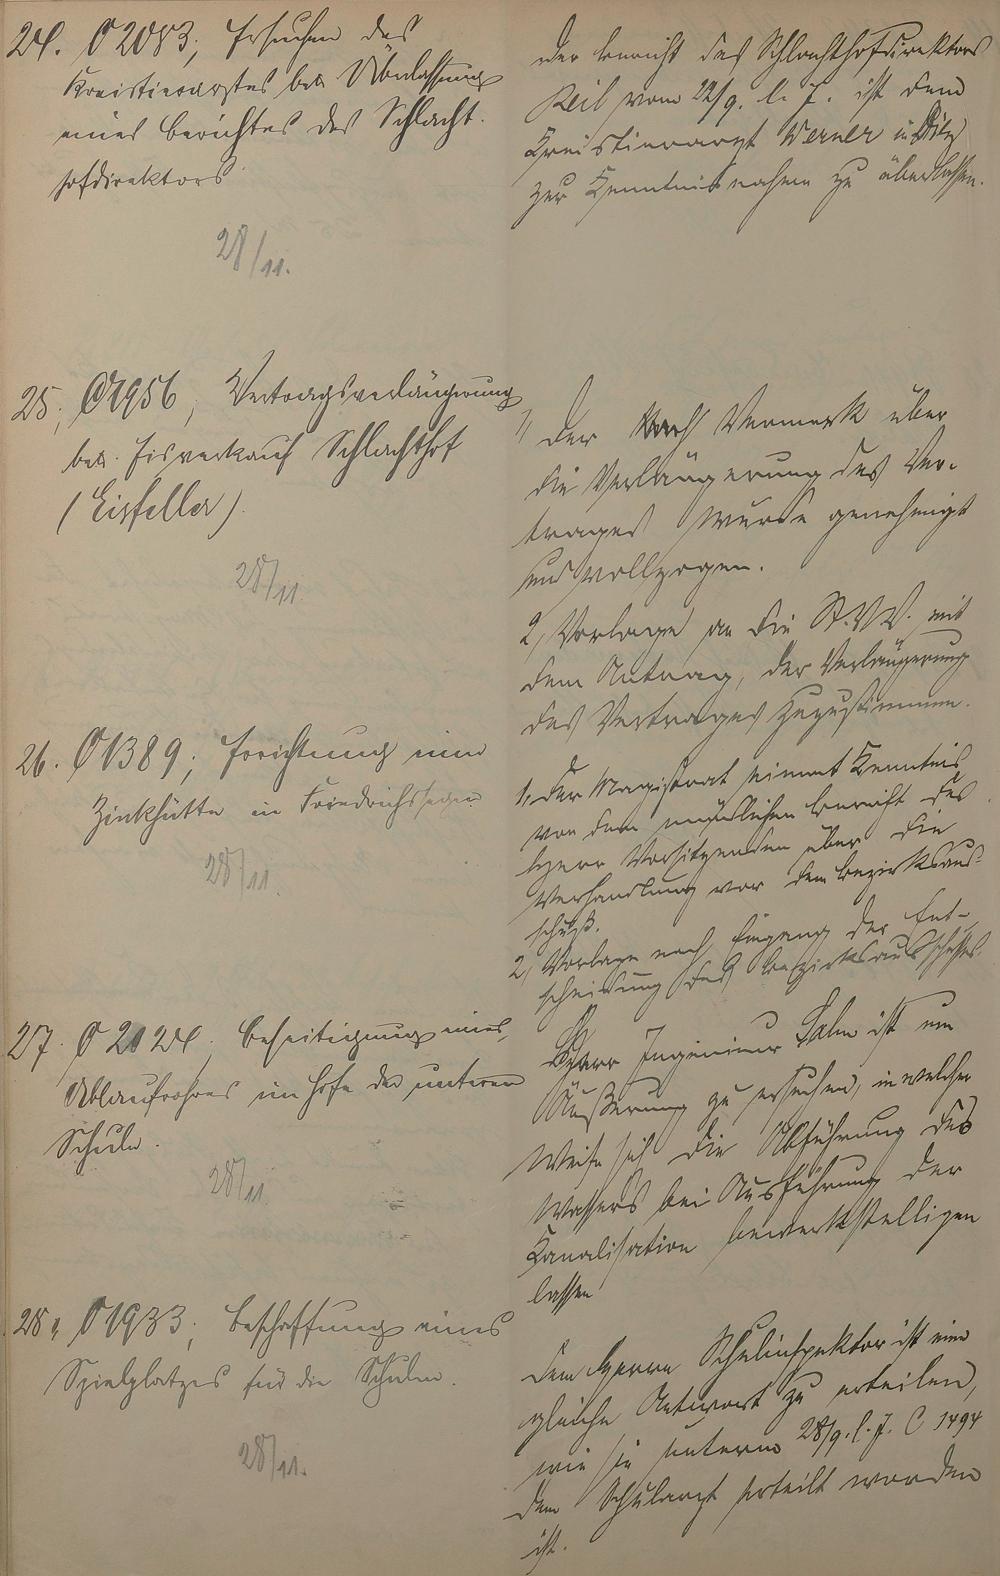 24. C 2083; Ersuchen des
Kreistierarztes betr. Überlassung
eines Berichtes des Schlacht-
hofdirektors.
28/11.
Der Bericht des Schlachthofdirektors
Keil vom 22/9. l. J. ist dem
Kreistierarzt Werner in Diez
zur Kenntnisnahme zu überlassen.
25, C 1956, Vertragsverlängerung
betr. Eisverkauf Schlachthof
(Eisfeller).
28/11
1, Der Vermerk über
die Verlängerung des Ver-
trages wurde genehmigt
und vollzogen.
2, Vorlage an die St.V.V. mit
dem Antrag, der Verlängerung
des Vertrages zuzustimmen.
26. C 1389; Errichtung einer
Zinkhütte in Friedrichssegen
28/11.
1, Der Magistrat nimmt Kenntnis
von dem mündlichen Bericht des
Herrn Vorsitzenden über die
Verhandlung vor dem Bezirksaus-
schuß.
2, Vorlage nach Eingang der Ent-
scheidung des Bezirksausschusses.
27. C 2024, Beseitigung eines
Ablaufrohres im Hofe der unteren
Schule.
28/11
Herr Ingenieur ist um
Äußerung zu ersuchen, in welcher
Weise sich die Abführung des
Wassers bei Ausführung der
Kanalisation bewerkstelligen
lassen
28, C 1933; Beschaffung eines
Spielplatzes für die Schulen.
28/11.
Dem Herrn Schulinspektor ist eine
gleiche Antwort zu erteilen,
wie sie unterm 28/9. l. J. C 1494
dem Schularzt erteilt worden
ist.